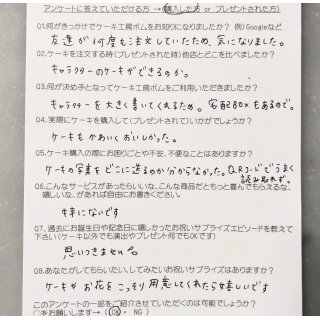 アンケートに答えていただける方→(購入した方 or プレゼントされた方)
01.何がきっかけでケーキ工房ボムをお知りになりましたか? 例)Googleなど
友達が何度も注文していたため、気になりました。
02.ケーキを注文する時(プレゼントされた時)他店とどこを比べましたか?
キャラクターのケーキができるか。
03.何が決め手となってケーキ工房ボムをご利用いただきましたか?
キャラクターを大きく書いてくれるため。宅配BOXもあるので。
04.実際にケーキを購入して(プレゼントされて)いかがでしょうか?
ケーキもかわいくおいしかった。
05.ケーキ購入の際にお困りごとや不安、不便なことはありますか?
ケーキの写真をどこに送るのか分からなかった。QRコードでうまく
読み取れず。
06.こんなサービスがあったらいいな、こんな商品だともっと喜んでもらえるな、
嬉しいな、があれば自由にお書きください。
特にないです
07.過去にお誕生日や記念日に嬉しかったお祝いサプライズエピソードを教えて
下さい(ケーキ以外でも演出やプレゼント何でもOKです)
思いつきません。
08.あなたがしてもらいたい、してみたいお祝いサプライズはありますか?
ケーキやお花をこっそり用意してくれたら嬉しいです
このアンケートの一部をご紹介させていただくのは可能でしょうか?
○をお願いします→(OK ・ NG)